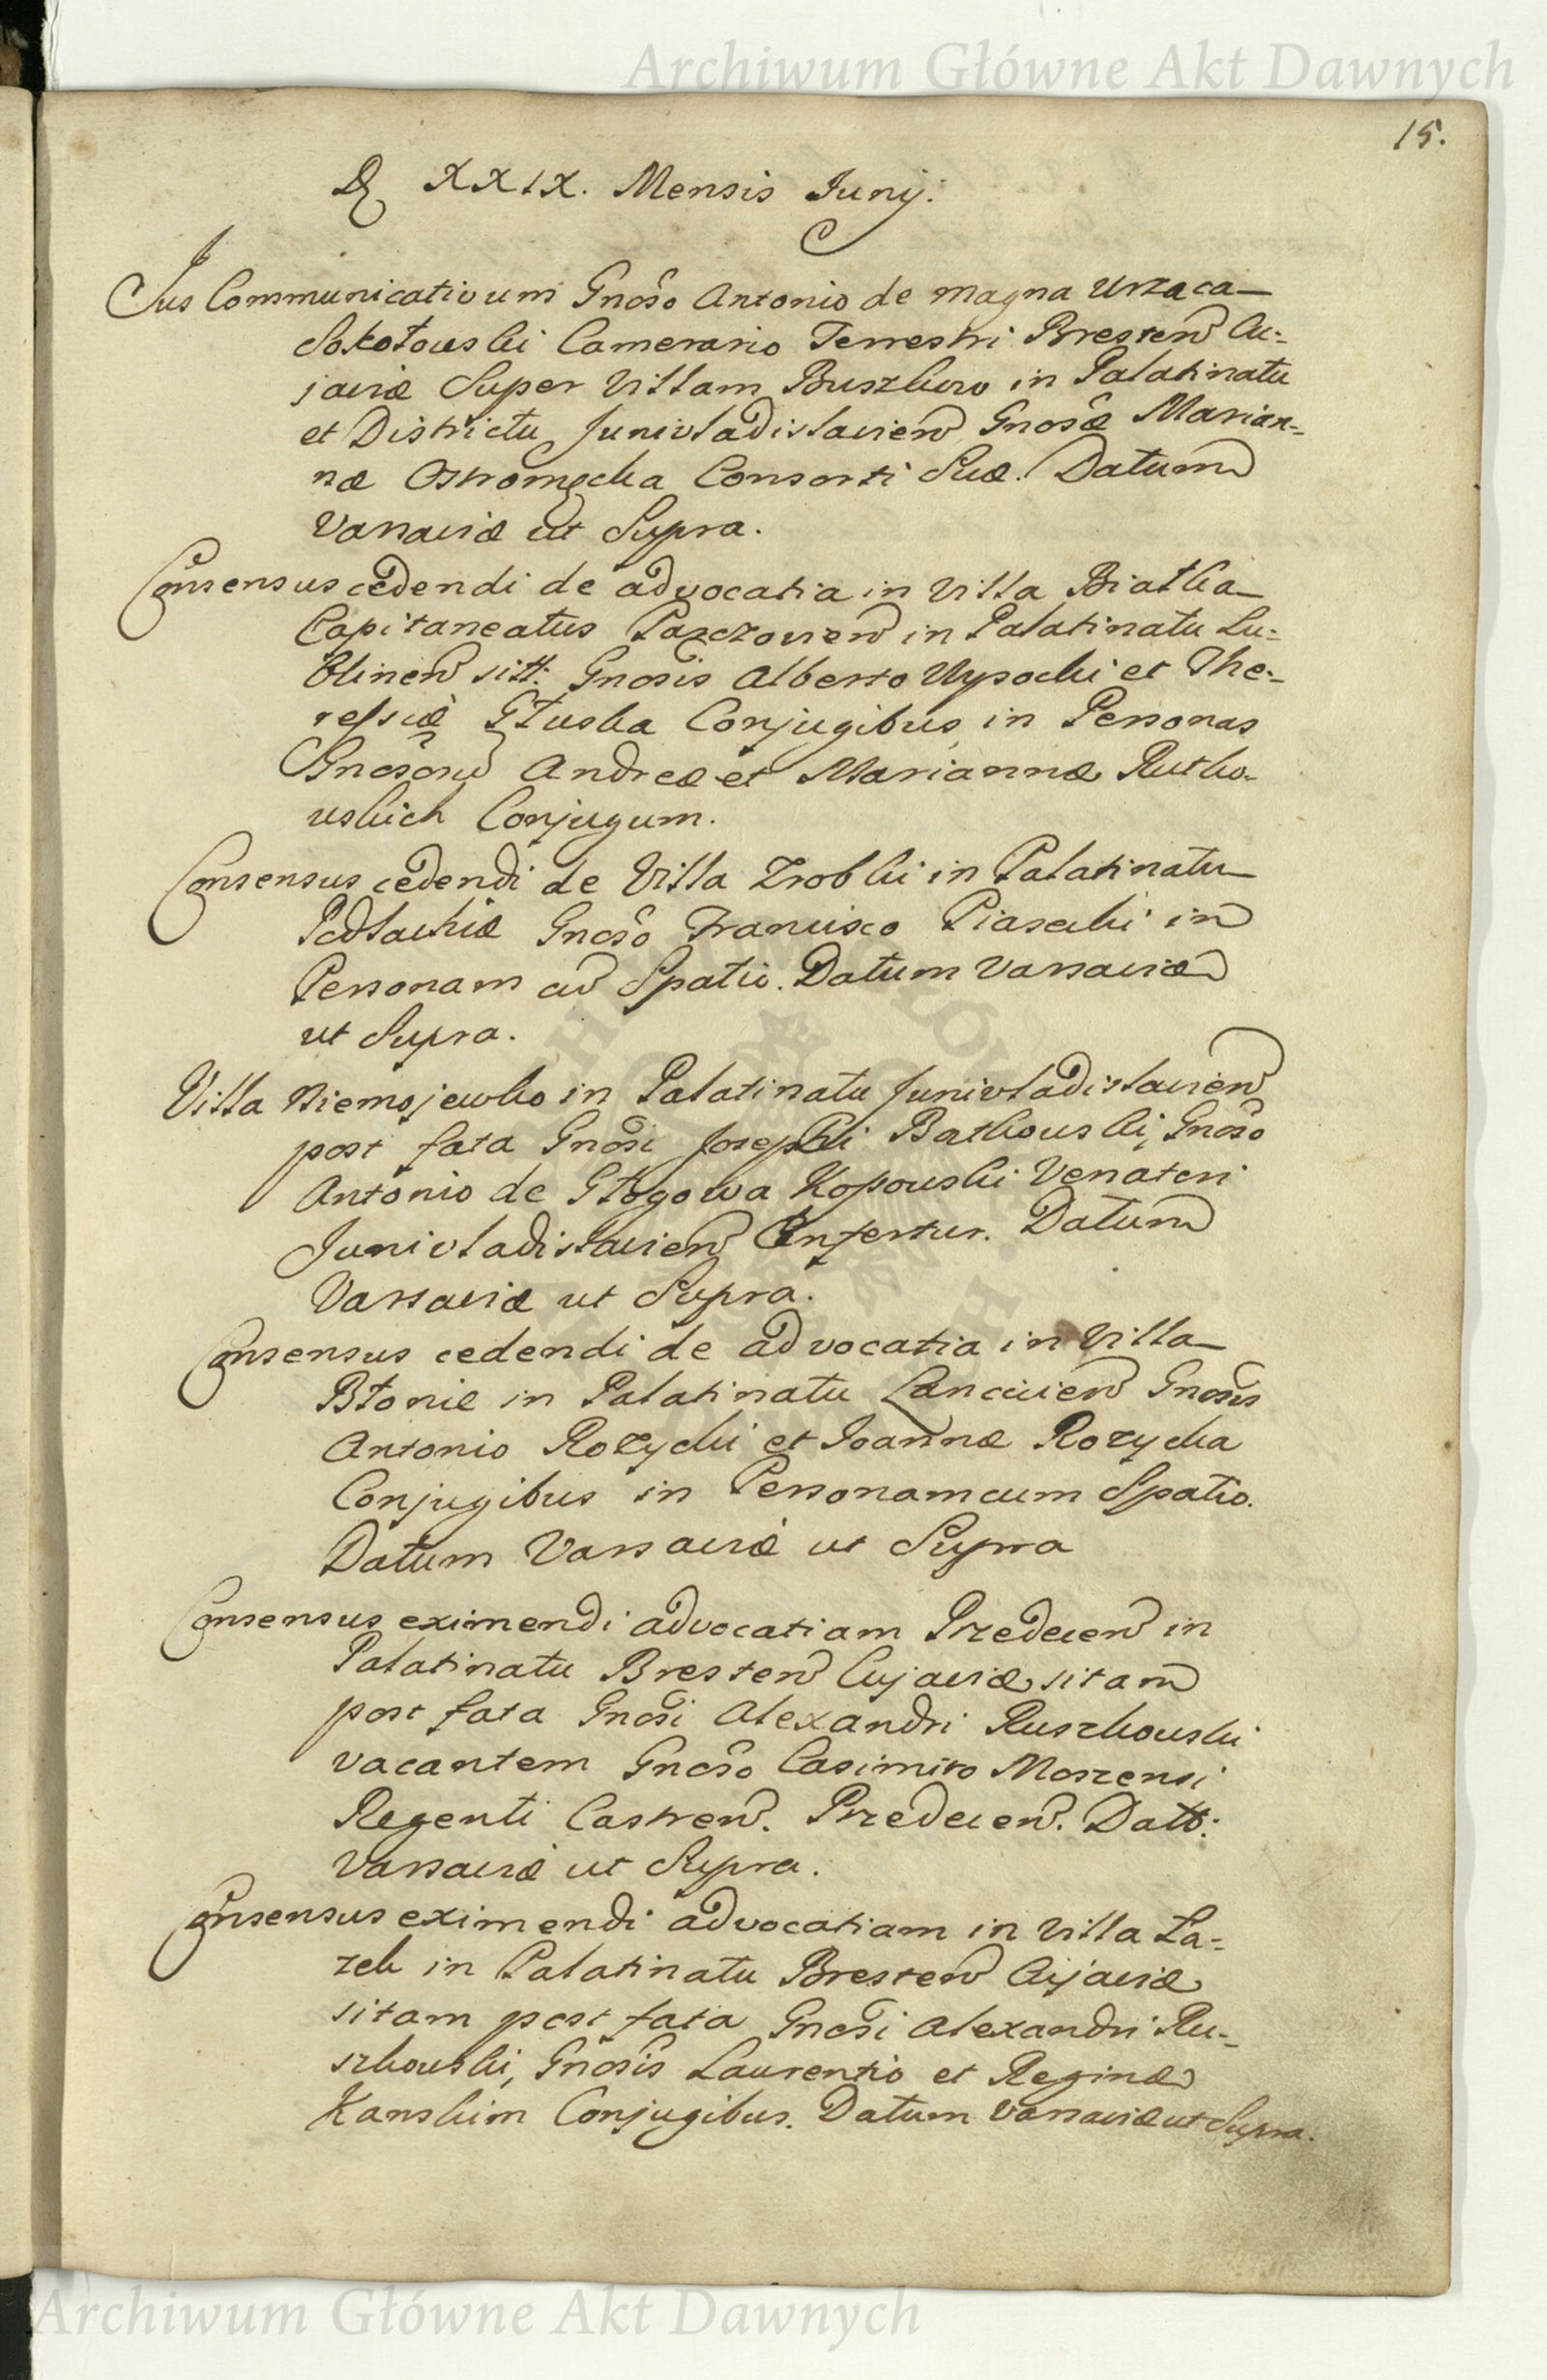 Archiwum Główne Akt Dawnych
15.
D XXIX. Mensis Junij.
Jus Communicativum Gnoso Antonio de Magna Wrzaca
Sokołowski Camerario Terrestri Bresten Cu-
javiæ Super Villam Buszkowo in Palatinatu
et Districtu Junivladislavien Gnosæ Marian-
næ Ostromęcka Consorti Suæ. Datum
Varsaviæ ut Supra.
Consensus cedendi de advocatia in Villa Białka
Capitaneatus Parczovien in Palatinatu Lu-
blinen sitt: Gnosis Alberto Wysocki et The-
ressiæ Głuska Conjugibus, in Personas
Gnosoru Andreæ et Mariannæ Rutko-
wskich Conjugum.
Consensus cedendi de Villa Zrobki in Palatinatu
Podlachiæ Gnoso Francisco Piasecki in
Personam cu Spatio. Datum Varsaviæ
ut Supra.
Villa Niemojewko in Palatinatu Junivladislavien
post fata Gnosi Josephi Bątkowski, Gnoso
Antonio de Głogowa Kossowski Venatori
Junivladislavien Confertur. Datum
Varsaviæ ut Supra.
Consensus cedendi de advocatia in Villa
Błonie in Palatinatu Lancicien Gnosis
Antonio Rozycki et Joannæ Rozycka
Conjugibus in Personam cum Spatio.
Datum Varsaviæ ut Supra
Consensus eximendi advocatiam Przedecen in
Palatinatu Bresten Cujaviæ sitam
post fata Gnosi Alexandri Ruszkowski
vacantem Gnoso Casimiro Moszenski
Regenti Castren. Przedecen. Datt:
Varsaviæ ut Supra.
Consensus eximendi advocatiam in Villa La-
zek in Palatinatu Bresten Cujaviæ
sitam post fata Gnosi Alexandri Ru-
szkowski, Gnosis Laurentio et Reginæ
Kanskim Conjugibus. Datum Varsaviæ ut Supra.
Archiwum Główne Akt Dawnych